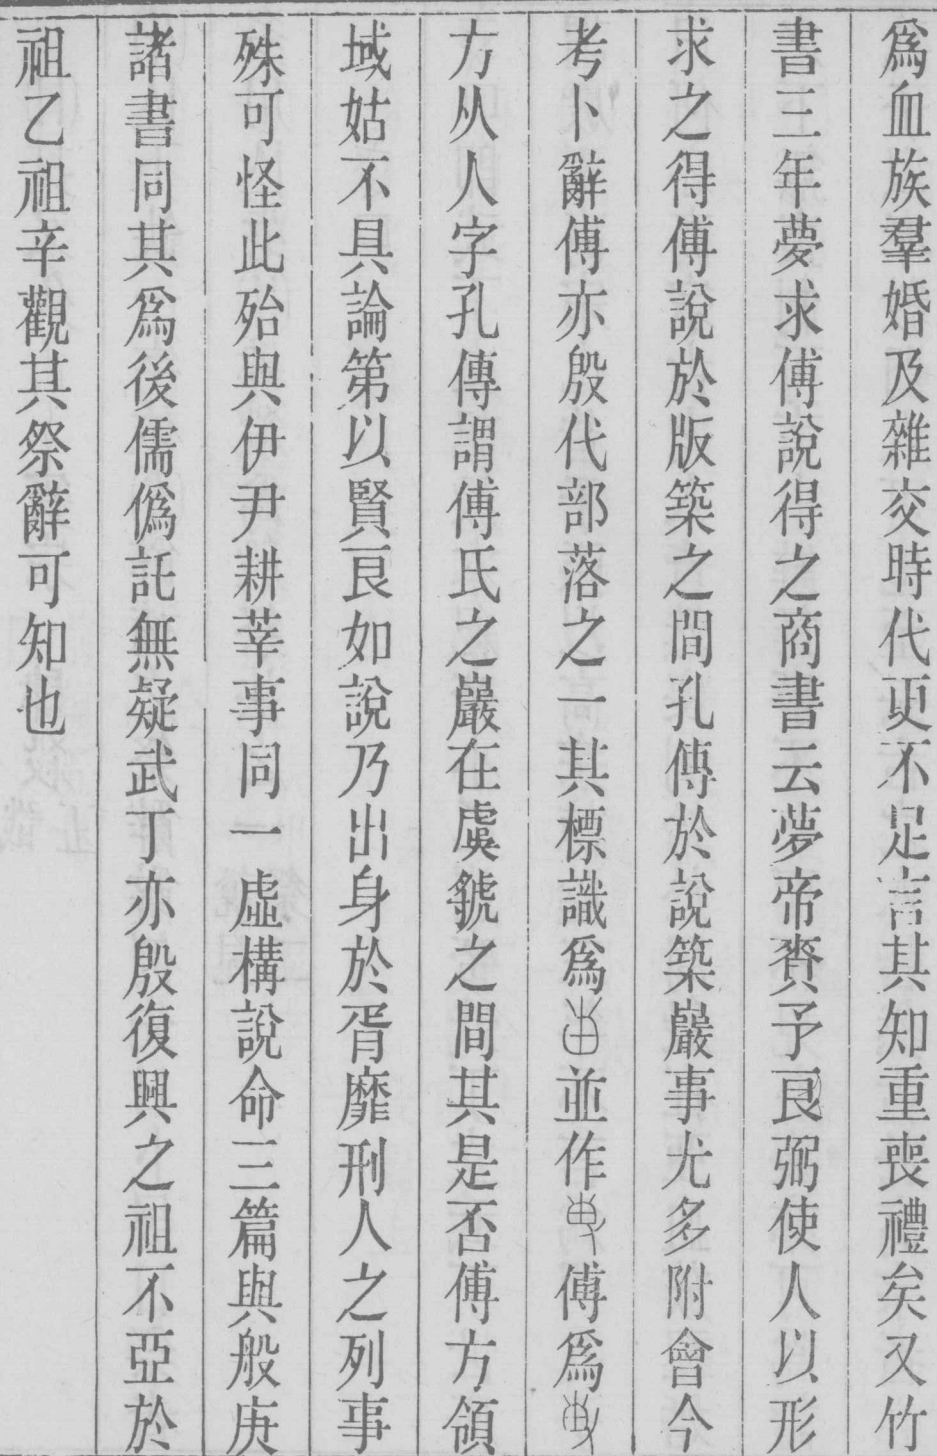 爲血族羣婚及雜交時代更不足言其知重喪禮矣又竹
書三年夢求傅說得之商書云夢帝賚予良弼使人以形
求之得傅說於版築之間孔傳於說築巖事尤多附會今
考卜辭傅亦殷代部落之一其標識爲並作傅爲
方从人字孔傳謂傅氏之巖在虞虢之間其是否傅方領
域姑不具論第以賢良如說乃出身於胥靡刑人之列事
殊可怪此殆與伊尹耕莘事同一虛構說命三篇與般庚
諸書同其爲後儒僞託無疑武丁亦殷復興之祖不亞於
祖乙祖辛觀其祭辭可知也